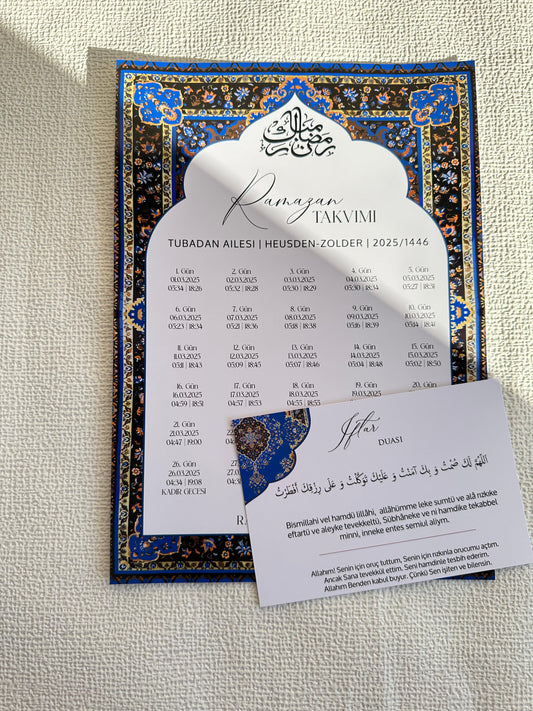 رمضان مبارك
Ramazan
TAKVİMİ
TUBADAN AILESI | HEUSDEN-ZOLDER | 2025/1446
1. Gün 2. Gün 3. Gün 4. Gün 5. Gün
01.03.2025 02.03.2025 03.03.2025 04.03.2025 05.03.2025
05:34 | 18:26 05:32 | 18:28 05:30 | 18:29 05:30 | 18:34 05:27 | 18:31
6. Gün 7. Gün 8. Gün 9. Gün 10. Gün
06.03.2025 07.03.2025 08.03.2025 09.03.2025 10.03.2025
05:23 | 18:34 05:21 | 18:36 05:18 | 18:38 05:16 | 18:39 05:14 | 18:41
11. Gün 12. Gün 13. Gün 14. Gün 15. Gün
11.03.2025 12.03.2025 13.03.2025 14.03.2025 15.03.2025
05:11 | 18:43 05:09 | 18:45 05:07 | 18:46 05:04 | 18:48 05:02 | 18:50
16. Gün 17. Gün 18. Gün 19. Gün 20. Gün
16.03.2025 17.03.2025 18.03.2025 19.03.2025
04:59 | 18:51 04:57 | 18:53 04:55 | 18:55
21. Gün
21.03.2025
04:47 | 19:00
26. Gün
26.03.2025
04:34 | 19:08
KADIR GECESİ
İftar
DUASI
اللَّهُمَّ لَكَ صُمْتُ وَ بِكَ آمَنْتُ وَ عَلَيْكَ تَوَكَّلْتُ وَ عَلَى رِزْقِكَ أَفْطَرْتُ
Bismillahi vel hamdü lillâhi, allâhümme leke sumtü ve alâ rızkıke
eftartü ve aleyke tevekkeltü, Sübhâneke ve ni hamdike tekabbel
minni, inneke entes semiul aliym.
Allahım! Senin için oruç tuttum, Senin için rızkınla orucumu açtım.
Ancak Sana tevekkül ettim. Seni hamdinle tesbih ederim.
Allahım Benden kabul buyur. Çünkü Sen işiten ve bilensin.